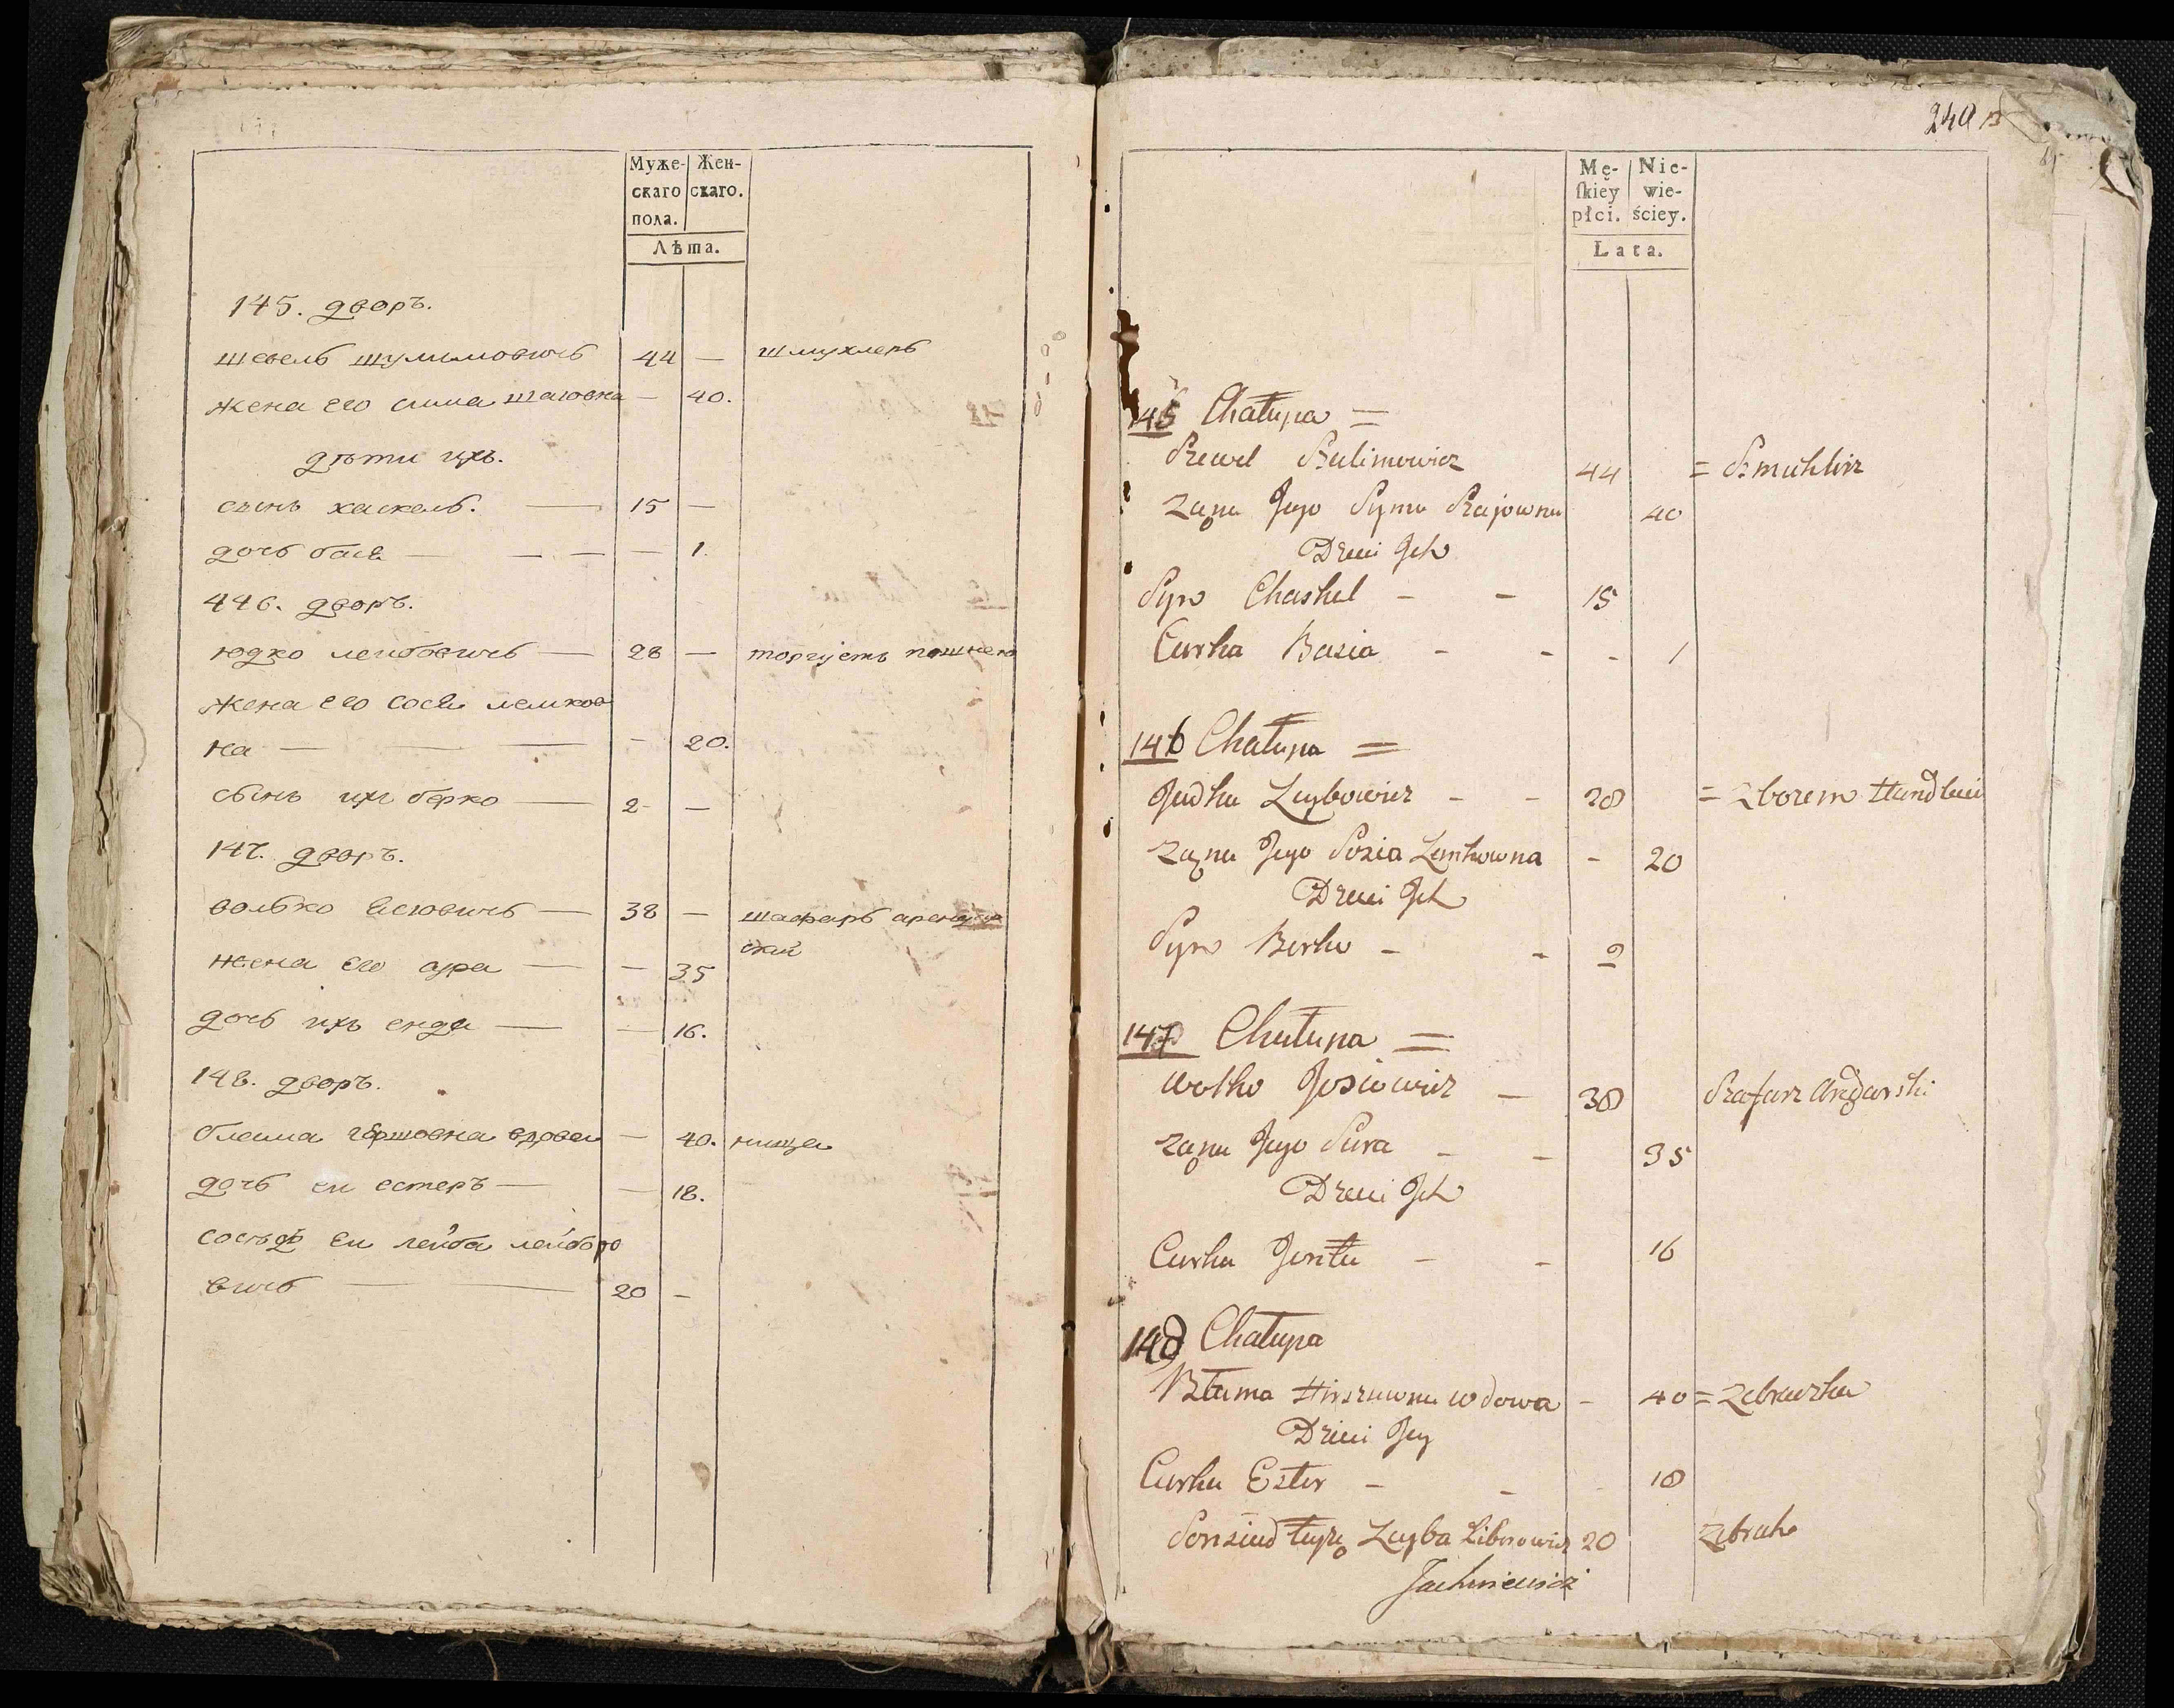 Муже-
скаго
пола.
Жен-
скаго.
Лѣта.
145. дворъ.
шевель шулимовичь 44 — шмуклерь
жена его сима шаиовна — 40.
дѣти ихъ.
сынь хаскель. — 15 —
дочь бася — — — — 1.
446. дворъ.
юдко леибовичь — 28 — торгуеть
жена его сося лемков
на — — — - 20.
сынь ихъ берко — 2 —
147. дворъ.
волько иосіовичь — 38 — шафарь
ский
жена его сура — — 35
дочь ихъ енда — — 16.
148. дворъ.
блюма гершовна вдова — 40. нища
дочь еи естеръ — — 18.
сосѣдъ еи леиба
вичь — — 20 –
240
Mę-
ſkiéy
płci.
Nie-
wie-
ściey.
Lata.
145 Chałupa =
Szewel Szulimowicz 44 = Szmuklirz
Ząna Jego Syma Szajowna 40
Dzieci Jch
Syn Chaskel - - 15
Curka Basia - - - 1
146 Chałupa =
Judka Leybowicz - - 28 = Zborem Handluie
Ząna Jego Sosia Lemkowna - 20
Dzieci Jch
Syn Berko - - 2
147 Chałupa =
Wolko Josiowicz — 38 Szafarz Arędarski
Ząna Jego Sura - - 35
Dzieci Jch
Curka Jenta - - 16
148 Chałupa
Bluma Hirszowna Wdowa - 40 = Zebraczka
Dzieci Jey
Curka Ester - - 18
Sonsiad tyże Leyba Liborowicz 20 Zebrak